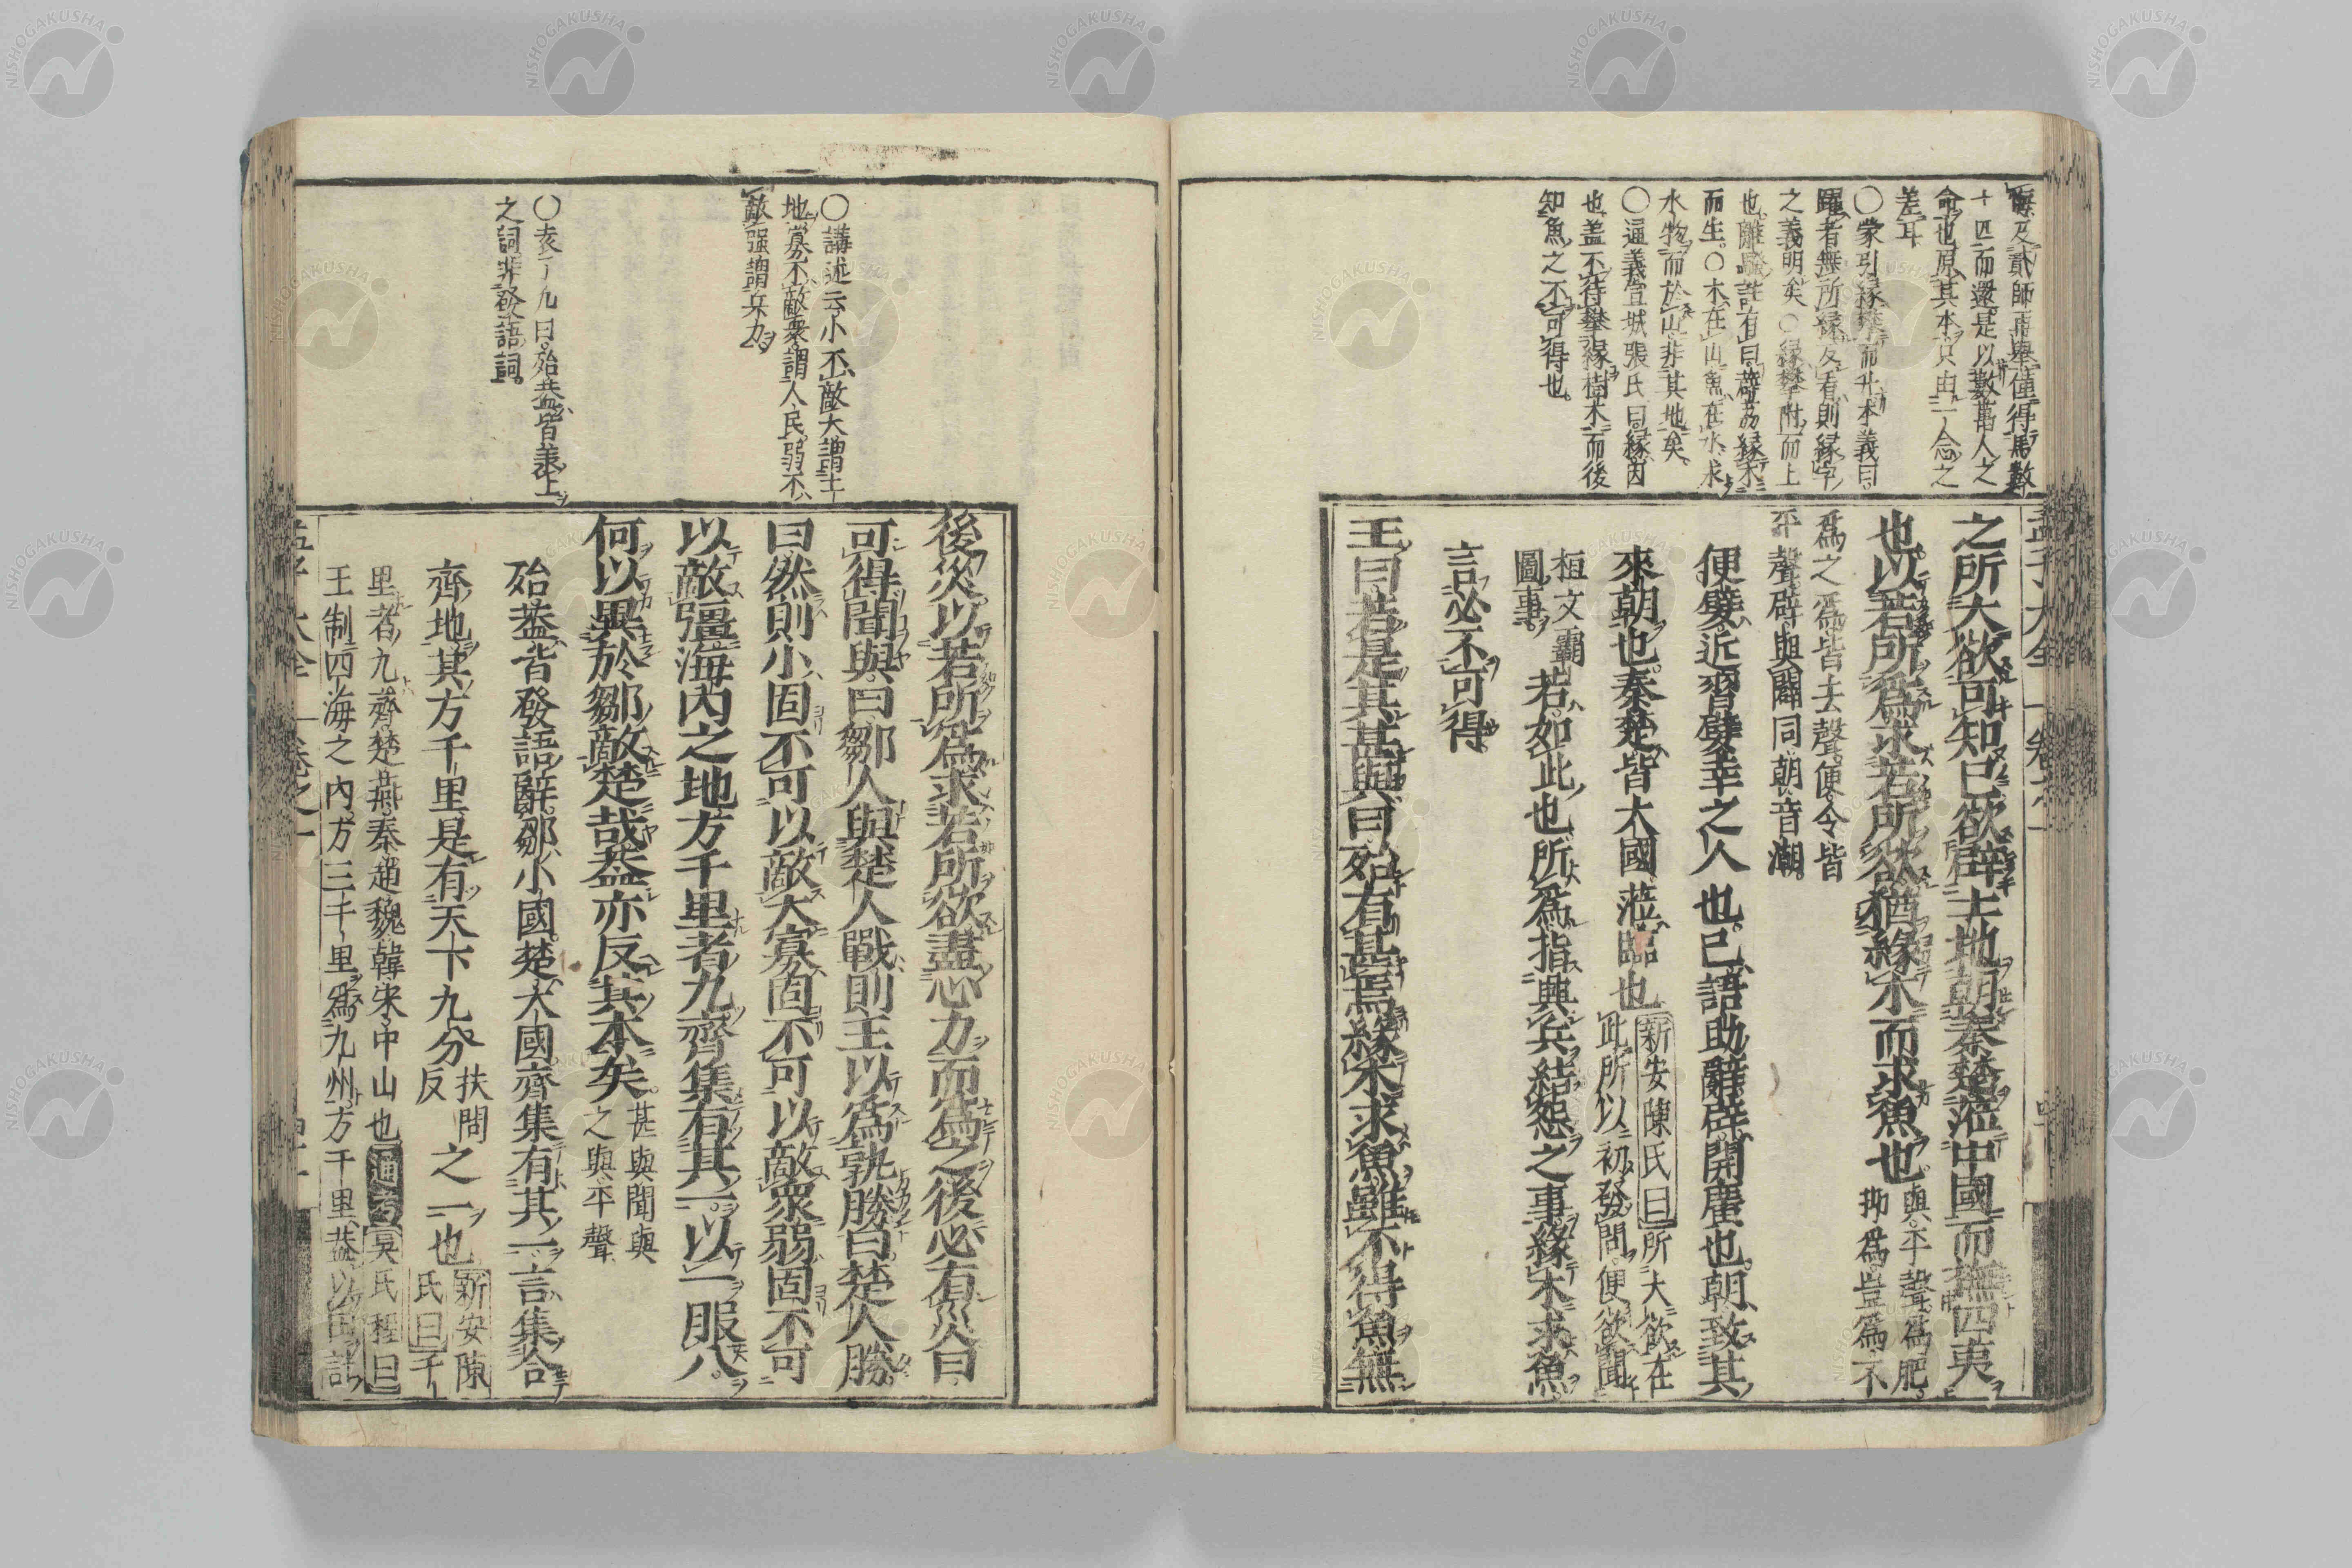 悔及貳師再舉僅得馬數
十匹而還是以數萬人之
命也原其本只由一念之
差耳
○蒙引緣攀而升本義曰
躧者無所緣反看則緣字
之義明矣○緣攀附而上
也離騷註有曰薜茘緣木
而生○木在山魚在水求
水物而於山非其地矣
○通義宣城張氏曰緣因
也蓋不待攀緣樹木而後
知魚之不可得也
之所大欲可知已欲辟土地朝秦楚莅中國而撫四夷
也以若所爲求若所欲猶緣木而求魚也
與平聲爲肥
抑爲豈爲不
爲之爲皆去聲便令皆
平聲辟與闢同朝音潮
便嬖近習嬖幸之人也已語助辭辟開廣也朝致其
來朝也秦楚皆大國莅臨也
新安陳氏曰所大欲在
此所以初發問便欲聞
桓文霸
圖事
若如此也所爲指興兵結怨之事緣木求魚
言必不可得
王曰若是其甚與曰殆有甚焉緣木求魚雖不得魚無
後災以若所爲求若所欲盡心力而爲之後必有災曰
可得聞與曰鄒人與楚人戰則王以爲孰勝曰楚人勝
曰然則小固不可以敵大寡固不可以敵衆弱固不可
以敵彊海內之地方千里者九齊集有其一以一服八
何以異於鄒敵楚哉蓋亦反其本矣
甚與聞與
之與平聲
殆蓋皆發語辭鄒小國楚大國齊集有其一言集合
齊地其方千里是有天下九分
扶問
反
之一也
新安陳
氏曰千
里者九齊楚燕秦趙魏韓宋中山也通考吳氏程曰
王制四海之內方三千里爲九州方千里蓋以田計
○講述云小不敵大謂土
地寡不敵衆謂人民弱不
敵強謂兵力
○袁了凡曰殆蓋皆羕上
之詞非發語詞
NISHOGAKUSHA